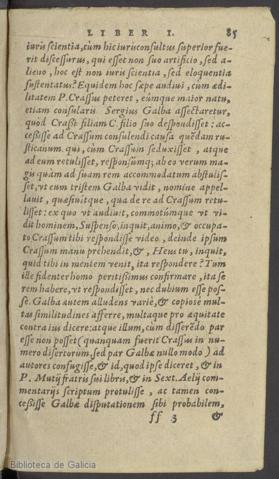 LIBER I. 85
iuris scientia, cùm hic iuriconsultus superior fue-
rit discessurus, qui esset non suo artificio, sed a-
lieno, hoc est non iuris scientia, sed eloquentia
sustentatus? Equidem hoc sæpe audiui, cùm ædi-
litatem P. Crassus peteret, eúmque maior natu,
etiam consularis Sergius Galba assectaretur,
quòd Crassi filiam C. filio suo despondisset: ac-
cessisse ad Crassum consulendi causa quēdam ru-
sticanum. qui, cùm Crassum seduxisset, atque
ad eum retulisset, responsúmq; ab eo verum ma-
gis quàm ad suam rem accommodatum abstulis-
set, vt eum tristem Galba vidit, nomine appel-
lauit, quæsiuitque, qua de re ad Crassum retu-
lisset: ex quo vt audiuit, commotúmque vt vi-
dit hominem, Suspenso, inquit, animo, & occupa-
to Crassum tibi respondisse video, deinde ipsum
Crassum manu prehendit, &, Heus tu, inquit,
quid tibi in mentem venit, ita respondere? Tum
ille fidenter homo peritissimus confirmare, ita se
rem habere, vt respondisset, nec dubium esse pos-
se. Galba autem alludens variè, & copiosè mul-
tas similitudines afferre, multaque pro æquitate
contra ius dicere: atque illum, cùm disserēdo par
esse non posset (quanquam fuerit Crassus in nu-
mero disertorum, sed par Galbæ nullo modo) ad
autores confugisse, & id, quod ipse diceret, & in
P. Mutij fratris sui libris, & in Sext. Aelij com-
mentarijs scriptum protulisse, ac tamen con-
cessisse Galbæ disputationem sibi probabilem,
ff 3 &
Biblioteca de Galicia